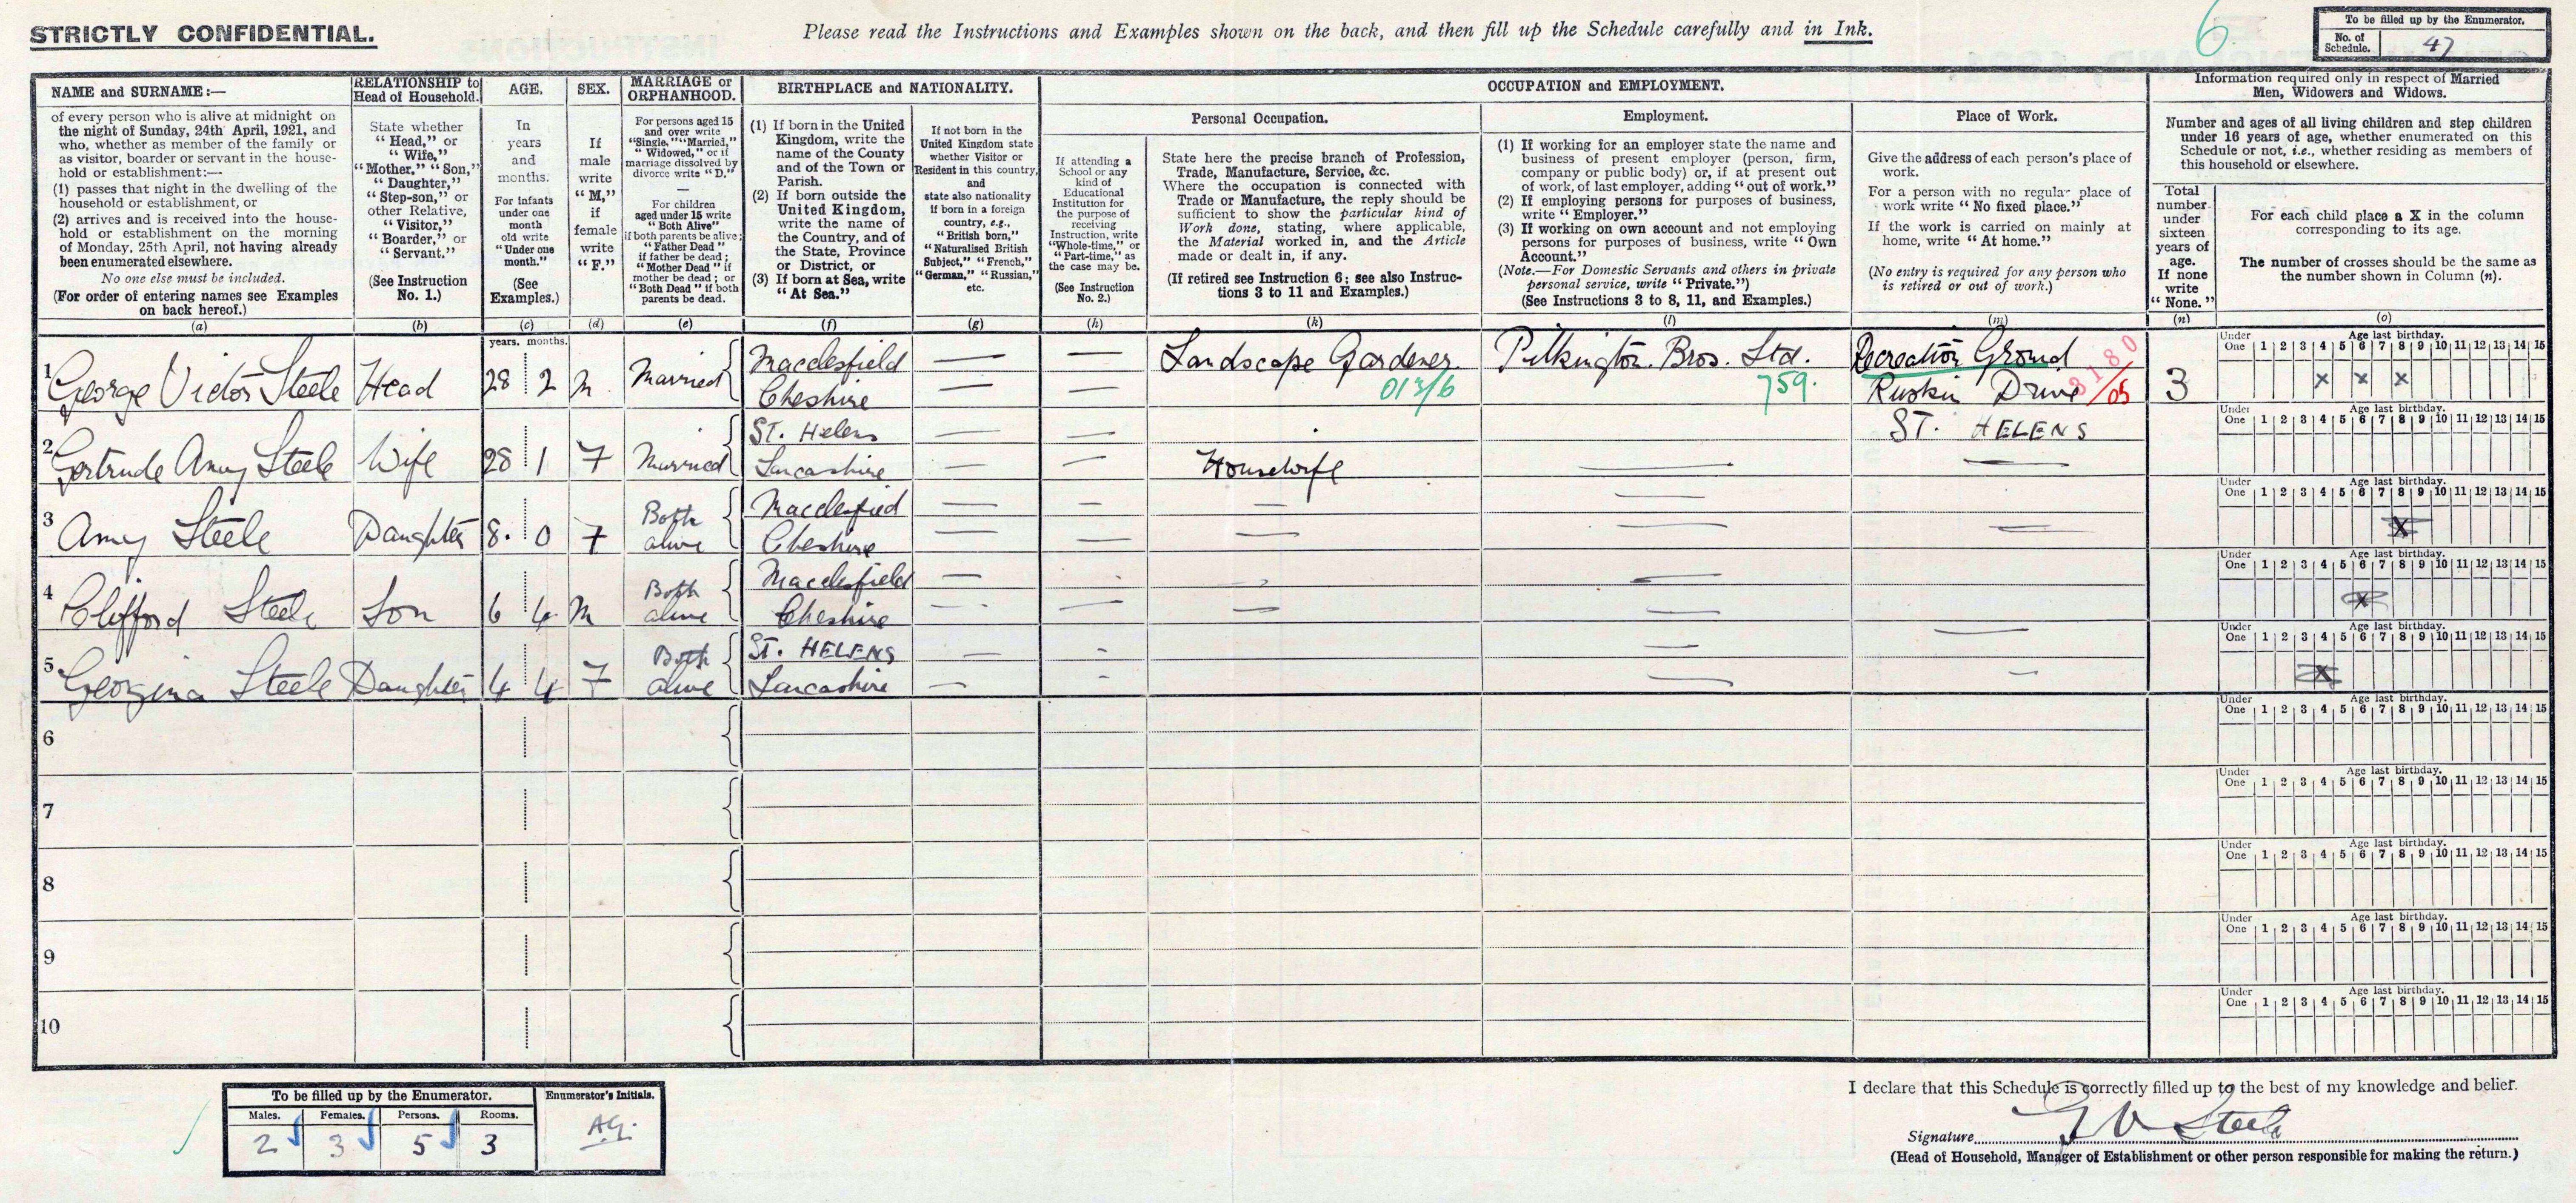 STRICTLY CONFIDENTIAL.
Please read the Instructions and Examples shown on the back, and then fill up the Schedule carefully and in Ink.
6
To be filled up by the Enumerator.
No. of Schedule. 47
NAME and SURNAME:—
of every person who is alive at midnight on
the night of Sunday, 24th April, 1921, and
who, whether as member of the family or
as visitor, boarder or servant in the house-
hold or establishment:—
(1) passes that night in the dwelling of the
household or establishment, or
(2) arrives and is received into the house-
hold or establishment on the morning
of Monday, 25th April, not having already
been enumerated elsewhere.
No one else must be included.
(For order of entering names see Examples
on back hereof.)
(a)
RELATIONSHIP to
Head of Household.
State whether
"Head," or
"Wife,"
"Mother," "Son,"
"Daughter,"
"Step-son," or
other Relative,
"Visitor,"
"Boarder," or
"Servant."
(See Instruction
No. 1.)
(b)
AGE.
In
years
and
months.
For infants
under one
month
old write
"Under one
month."
(See
Examples.)
(c)
SEX.
If
male
write
"M,"
if
female
write
"F."
(d)
MARRIAGE or
ORPHANHOOD.
For persons aged 15
and over write
"Single," "Married,"
"Widowed," or if
marriage dissolved by
divorce write "D."
—
For children
aged under 15 write
"Both Alive"
if both parents be alive;
"Father Dead"
if father be dead;
"Mother Dead" if
mother be dead; or
"Both Dead" if both
parents be dead.
(e)
BIRTHPLACE and NATIONALITY.
(1) If born in the United
Kingdom, write the
name of the County
and of the Town or
Parish.
(2) If born outside the
United Kingdom,
write the name of
the Country, and of
the State, Province
or District, or
(3) If born at Sea, write
"At Sea."
(f)
If not born in the
United Kingdom state
whether Visitor or
Resident in this country,
and
state also nationality
if born in a foreign
country, e.g.,
"British born,"
"Naturalised British
Subject," "French,"
"German," "Russian,"
etc.
(g)
OCCUPATION and EMPLOYMENT.
Personal Occupation.
If attending a
School or any
kind of
Educational
Institution for
the purpose of
receiving
Instruction, write
"Whole-time," or
"Part-time," as
the case may be.
(See Instruction
No. 2.)
(h)
State here the precise branch of Profession,
Trade, Manufacture, Service, &c.
Where the occupation is connected with
Trade or Manufacture, the reply should be
sufficient to show the particular kind of
Work done, stating, where applicable,
the Material worked in, and the Article
made or dealt in, if any.
(If retired see Instruction 6; see also Instruc-
tions 3 to 11 and Examples.)
(k)
Employment.
(1) If working for an employer state the name and
business of present employer (person, firm,
company or public body) or, if at present out
of work, of last employer, adding "out of work."
(2) If employing persons for purposes of business,
write "Employer."
(3) If working on own account and not employing
persons for purposes of business, write "Own
Account."
(Note.—For Domestic Servants and others in private
personal service, write "Private.")
(See Instructions 3 to 8, 11, and Examples.)
(l)
Place of Work.
Give the address of each person's place of
work.
For a person with no regular place of
work write "No fixed place."
If the work is carried on mainly at
home, write "At home."
(No entry is required for any person who
is retired or out of work.)
(m)
Information required only in respect of Married
Men, Widowers and Widows.
Number and ages of all living children and step children
under 16 years of age, whether enumerated on this
Schedule or not, i.e., whether residing as members of
this household or elsewhere.
Total
number
under
sixteen
years of
age.
If none
write
"None."
(n)
For each child place a X in the column
corresponding to its age.
The number of crosses should be the same as
the number shown in Column (n).
(o)
years. months.
Under One Age last birthday. 1 2 3 4 5 6 7 8 9 10 11 12 13 14 15
1 George Victor Steele Head 28 2 M Married Macclesfield Cheshire — — Landscape Gardener 013/6 Pilkington Bros. Ltd. 759. Recreation Ground Ruskin Drive ST. HELENS 3180 /05 3 x x x
Under One Age last birthday. 1 2 3 4 5 6 7 8 9 10 11 12 13 14 15
2 Gertrude Amy Steele Wife 28 1 F Married St. Helens Lancashire — — Housewife — —
Under One Age last birthday. 1 2 3 4 5 6 7 8 9 10 11 12 13 14 15
3 Amy Steele Daughter 8. 0 F Both alive Macclesfied Cheshire — — — — — x
Under One Age last birthday. 1 2 3 4 5 6 7 8 9 10 11 12 13 14 15
4 Clifford Steele Son 6 4 M Both alive Macclesfield Cheshire — — — — x
Under One Age last birthday. 1 2 3 4 5 6 7 8 9 10 11 12 13 14 15
5 Georgina Steele Daughter 4 4 F Both alive ST. HELENS Lancashire — — — — x
6 Under One Age last birthday. 1 2 3 4 5 6 7 8 9 10 11 12 13 14 15
7 Under One Age last birthday. 1 2 3 4 5 6 7 8 9 10 11 12 13 14 15
8 Under One Age last birthday. 1 2 3 4 5 6 7 8 9 10 11 12 13 14 15
9 Under One Age last birthday. 1 2 3 4 5 6 7 8 9 10 11 12 13 14 15
10 Under One Age last birthday. 1 2 3 4 5 6 7 8 9 10 11 12 13 14 15
To be filled up by the Enumerator.
Males. Females. Persons. Rooms.
2 3 5 3
Enumerator's Initials.
A.G.
I declare that this Schedule is correctly filled up to the best of my knowledge and belief.
Signature G V Steele
(Head of Household, Manager of Establishment or other person responsible for making the return.)